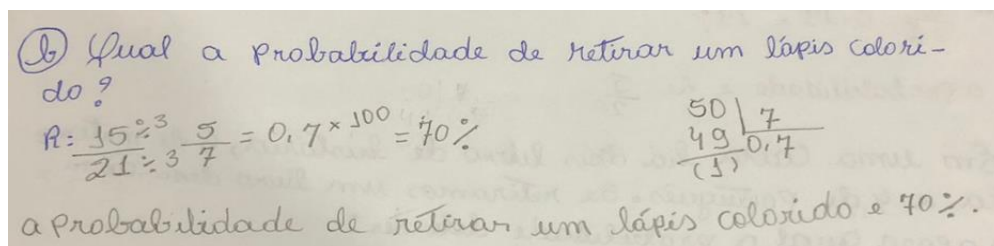 b) Qual a probabilidade de retirar um lápis colori-
do?
R: 15÷3 5 = 0,7 × 100 = 70% 50 | 7
21÷3 7 49 0,7
(1)
a probabilidade de retirar um lápis colorido e 70%.